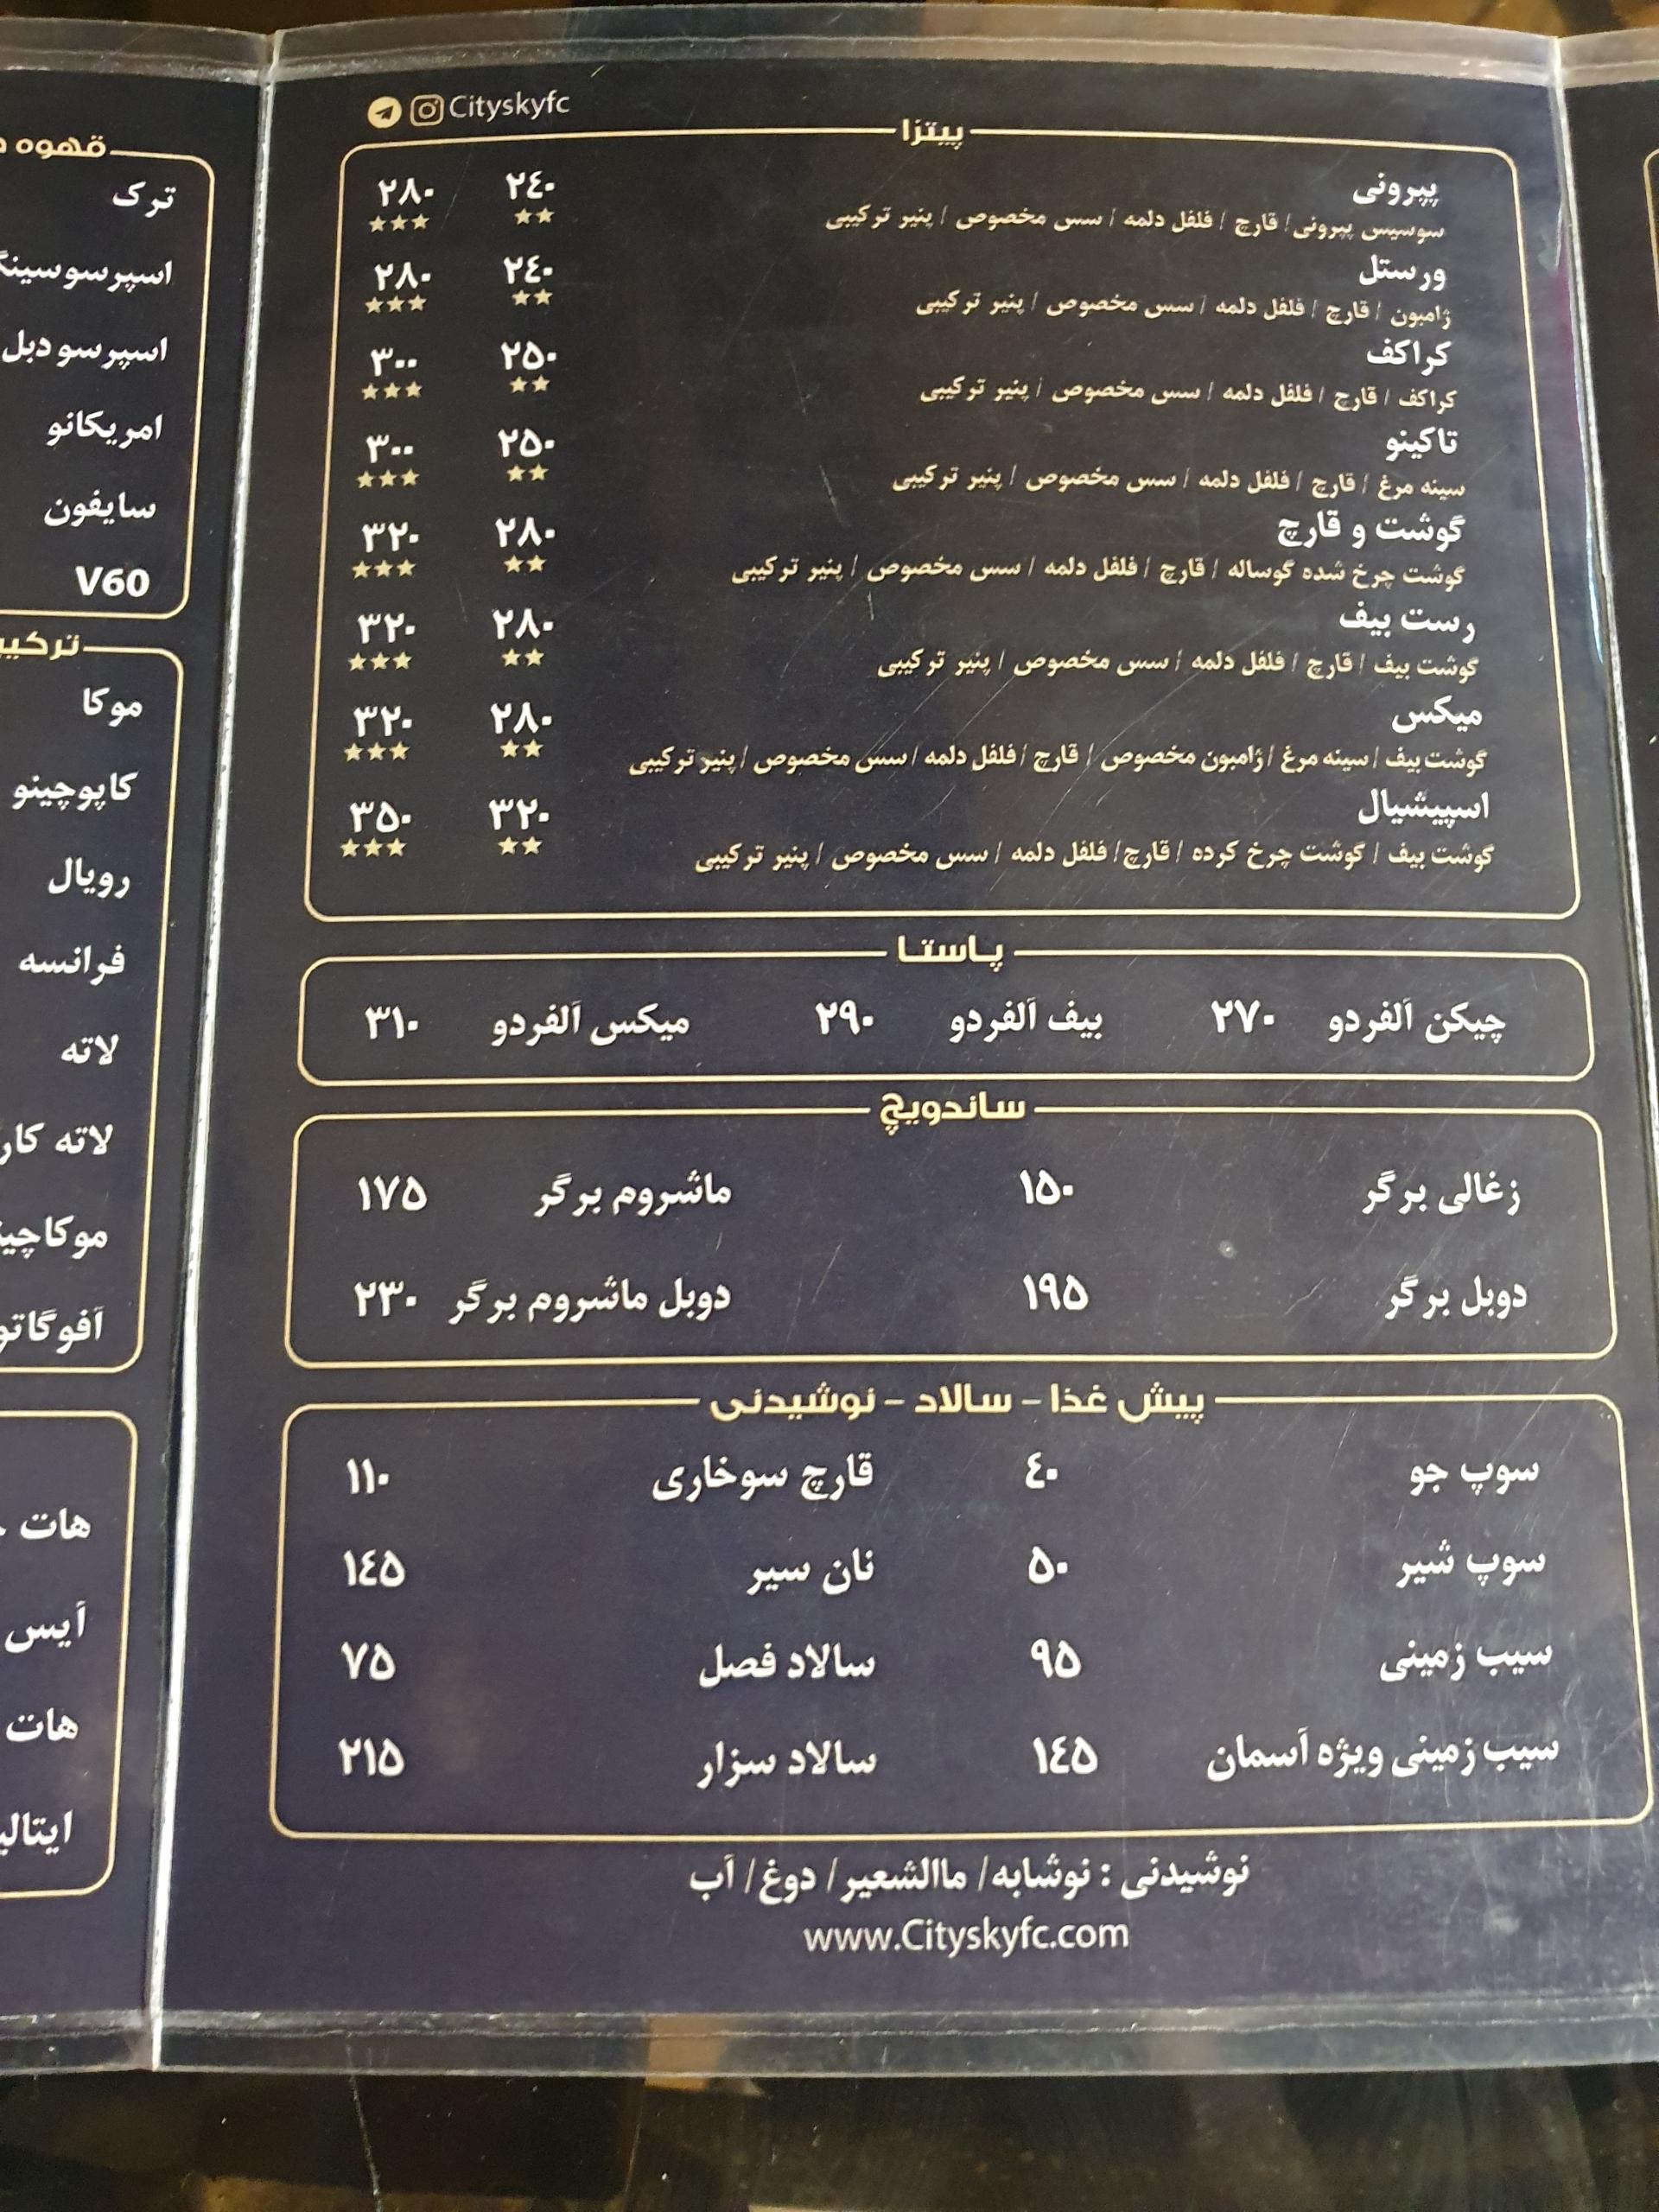 Cityskyfc
پیتزا
پپرونی ۲٤۰ ۲۸۰
سوسیس پپرونی/ قارچ / فلفل دلمه / سس مخصوص / پنیر ترکیبی
ورستل ۲٤۰ ۲۸۰
ژامبون / قارچ / فلفل دلمه / سس مخصوص / پنیر ترکیبی
کراکف ۲۵۰ ۳۰۰
کراکف / قارچ / فلفل دلمه / سس مخصوص / پنیر ترکیبی
تاکینو ۲۵۰ ۳۰۰
سینه مرغ / قارچ / فلفل دلمه / سس مخصوص / پنیر ترکیبی
گوشت و قارچ ۲۸۰ ۳۲۰
گوشت چرخ شده گوساله / قارچ / فلفل دلمه / سس مخصوص / پنیر ترکیبی
رست بیف ۲۸۰ ۳۲۰
گوشت بیف / قارچ / فلفل دلمه / سس مخصوص / پنیر ترکیبی
میکس ۲۸۰ ۳۲۰
گوشت بیف / سینه مرغ /ژامبون مخصوص / قارچ /فلفل دلمه /سس مخصوص /پنیر ترکیبی
اسپیشیال ۳۲۰ ۳۵۰
گوشت بیف / گوشت چرخ کرده / قارچ/ فلفل دلمه / سس مخصوص / پنیر ترکیبی
پاستا
چیکن آلفردو ۲۷۰ بیف آلفردو ۲۹۰ میکس آلفردو ۳۱۰
ساندویچ
زغالی برگر ۱۵۰ ماشروم برگر ۱۷۵
دوبل برگر ۱۹۵ دوبل ماشروم برگر ۲۳۰
پیش غذا - سالاد - نوشیدنی
سوپ جو ٤۰ قارچ سوخاری ۱۱۰
سوپ شیر ۵۰ نان سیر ۱٤۵
سیب زمینی ۹۵ سالاد فصل ۷۵
سیب زمینی ویژه آسمان ۱٤۵ سالاد سزار ۲۱۵
نوشیدنی : نوشابه/ ماالشعیر/ دوغ/ آب
www.Cityskyfc.com
قهوه
ترک
اسپرسو سینگ
اسپرسو دبل
امریکانو
سایفون
V60
ترکیب
موکا
کاپوچینو
رویال
فرانسه
لاته
لاته کار
موکاچین
آفوگاتو
هات
آیس
هات
ایتالی